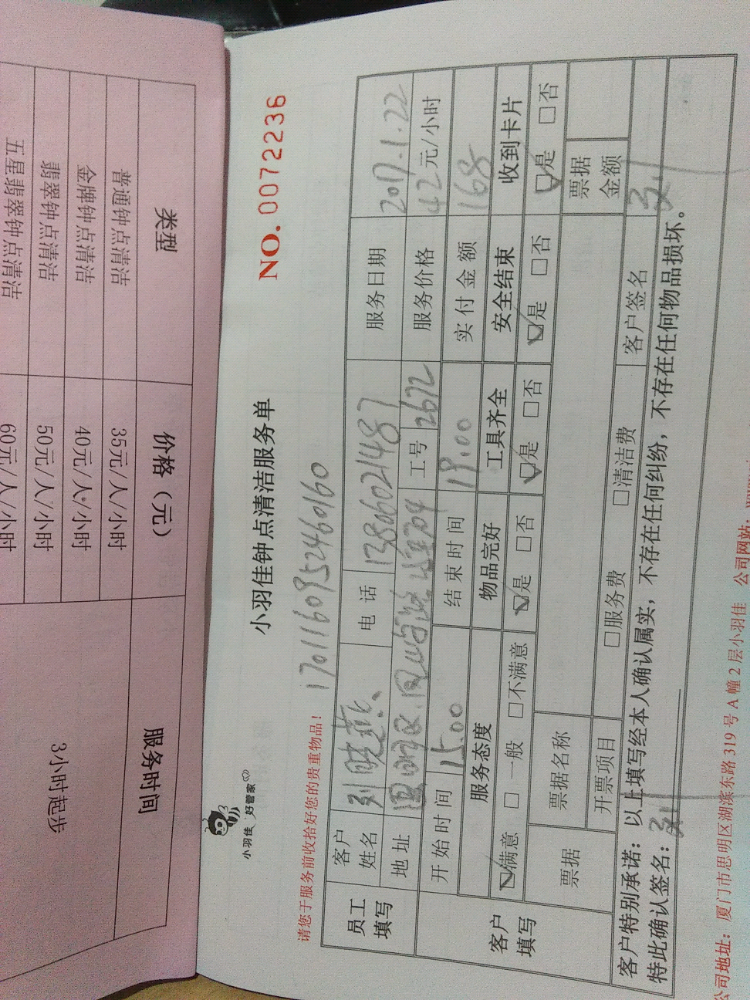 类型 价格（元） 服务时间
普通钟点清洁 35元/人/小时
金牌钟点清洁 40元/人/小时
翡翠钟点清洁 50元/人/小时
五星翡翠钟点清洁 60元/人/小时
3小时起步
小羽佳 好管家
小羽佳钟点清洁服务单
NO. 0072236
请您于服务前收拾好您的贵重物品！
1701160952460160
员工填写
客户姓名 刘晓燕 电话 13806021487 服务日期 2017.1.22
地址 思明区 工号 2672 服务价格 42元/小时
客户填写
开始时间 15.00 结束时间 19.00 实付金额 168
服务态度 物品完好 工具齐全 安全结束 收到卡片
☑满意 □一般 □不满意 ☑是 □否 ☑是 □否 ☑是 □否 ☑是 □否
票据 票据名称 票据金额
开票项目 □服务费 □清洁费 客户签名
客户特别承诺：以上填写经本人确认属实，不存在任何纠纷，不存在任何物品损坏。
特此确认签名：
公司地址：厦门市思明区湖滨东路 319 号 A 幢 2 层小羽佳 公司网站：